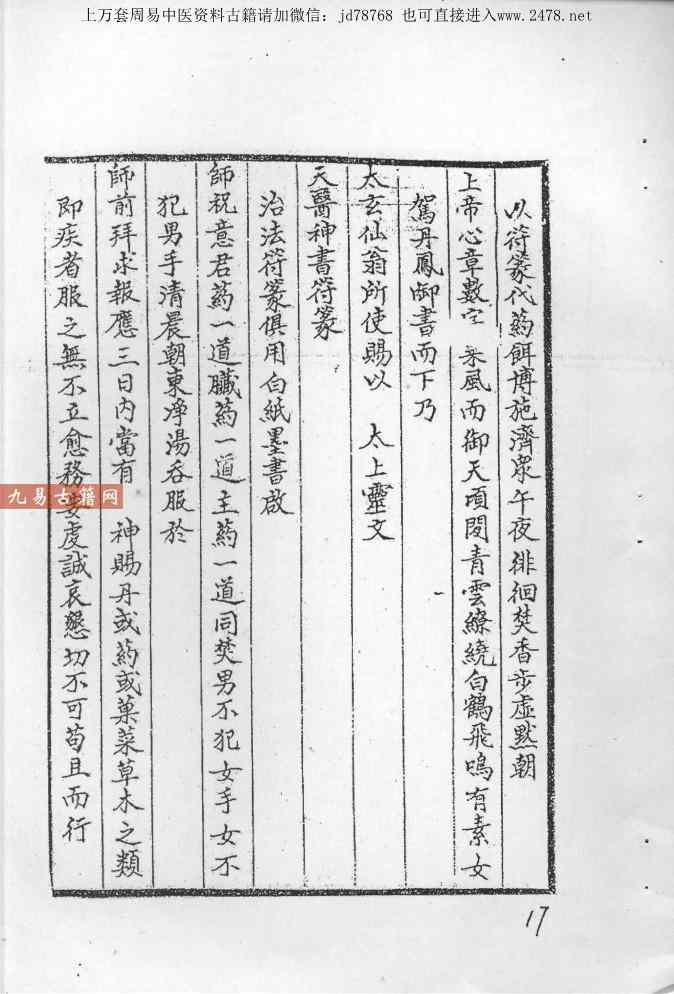 上万套周易中医资料古籍请加微信：jd78768 也可直接进入www.2478.net
以符篆代药餌博施濟眾午夜徘徊焚香步虛默朝
上帝心章數字 乘風而御天頃閔青雲繚繞白鶴飛鳴有素女
駕丹鳳御書而下乃
太玄仙翁所使賜以 太上靈文
天醫神書符篆
治法符篆俱用白紙墨書啟
師祝意君药一道臟药一道主药一道同焚男不犯女手女不
犯男手清晨朝東淨湯吞服於
師前拜求報應三日內當有 神賜丹或药或菓菜草木之類
即疾者服之無不立愈務要虔誠哀懇切不可苟且而行
九易古籍网
17